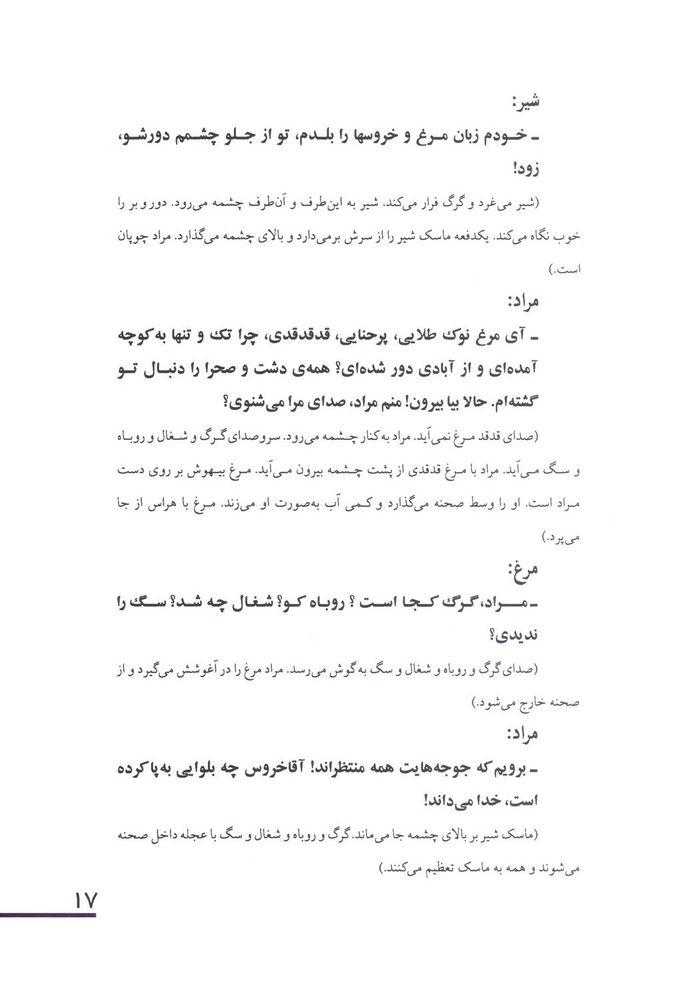 شیر:
ـ خودم زبان مرغ و خروسها را بلدم، تو از جلو چشمم دورشو،
زود!
(شیر می‌غرد و گرگ فرار می‌کند. شیر به این‌طرف و آن‌طرف چشمه می‌رود. دور و بر را
خوب نگاه می‌کند. یکدفعه ماسک شیر را از سرش برمی‌دارد و بالای چشمه می‌گذارد. مراد چوپان
است.)
مراد:
ـ آی مرغ نوک طلایی، پرحنایی، قدقدقدی، چرا تک و تنها به کوچه
آمده‌ای و از آبادی دور شده‌ای؟ همه‌ی دشت و صحرا را دنبال تو
گشته‌ام. حالا بیا بیرون! منم مراد، صدای مرا می‌شنوی؟
(صدای قدقد مرغ نمی‌آید. مراد به کنار چشمه می‌رود. سروصدای گرگ و شغال و روباه
و سگ می‌آید. مراد با مرغ قدقدی از پشت چشمه بیرون می‌آید. مرغ بیهوش بر روی دست
مراد است. او را وسط صحنه می‌گذارد و کمی آب به‌صورت او می‌زند. مرغ با هراس از جا
می‌پرد.)
مرغ:
ـ مراد، گرگ کجا است ؟ روباه کو؟ شغال چه شد؟ سگ را
ندیدی؟
(صدای گرگ و روباه و شغال و سگ به گوش می‌رسد. مراد مرغ را در آغوشش می‌گیرد و از
صحنه خارج می‌شود.)
مراد:
ـ برویم که جوجه‌هایت همه منتظراند! آقاخروس چه بلوایی به‌پا کرده
است، خدا می‌داند!
(ماسک شیر بر بالای چشمه جا می‌ماند. گرگ و روباه و شغال و سگ با عجله داخل صحنه
می‌شوند و همه به ماسک تعظیم می‌کنند.)
۱۷